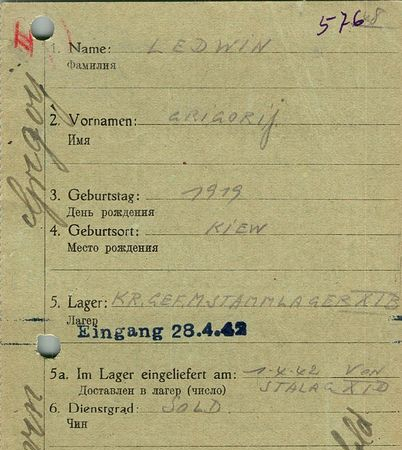 576
II
1. Name: LEDWIN
Фамилия
2. Vornamen: GRIGORIJ
Имя
3. Geburtstag: 1919
День рождения
4. Geburtsort: KIEW
Место рождения
5. Lager: KR.GEF.M.STAMMLAGER XI B
Лагер
Eingang 28.4.42
5a. Im Lager eingeliefert am: 1.4.42 VON
Доставлен в лагер (число) STALAG XI D
6. Dienstgrad: SOLD.
Чин
Grigorij